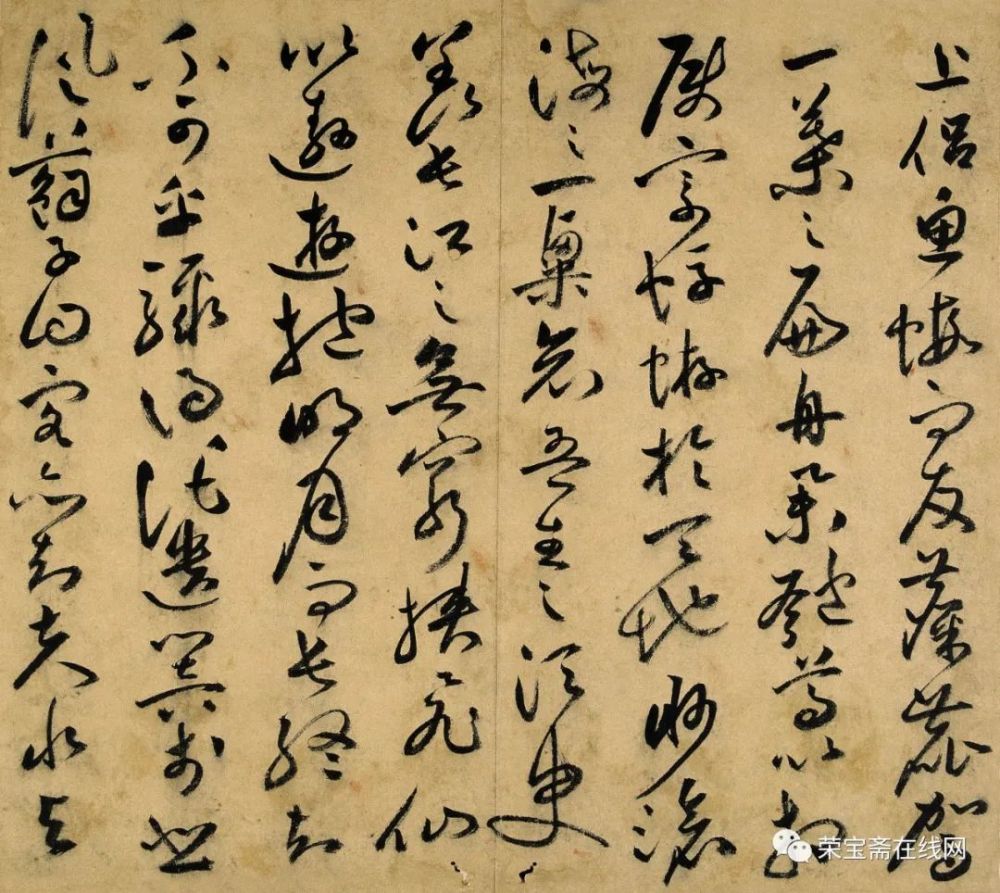 上侶魚蝦而友麋鹿駕
一葉之扁舟舉匏尊以相
屬寄蜉蝣於天地眇滄
海之一粟哀吾生之須臾
羨長江之無窮挾飛仙
以遨遊抱明月而長終知
不可乎驟得託遺響於悲
風蘇子曰客亦知夫水與
荣宝斋在线网